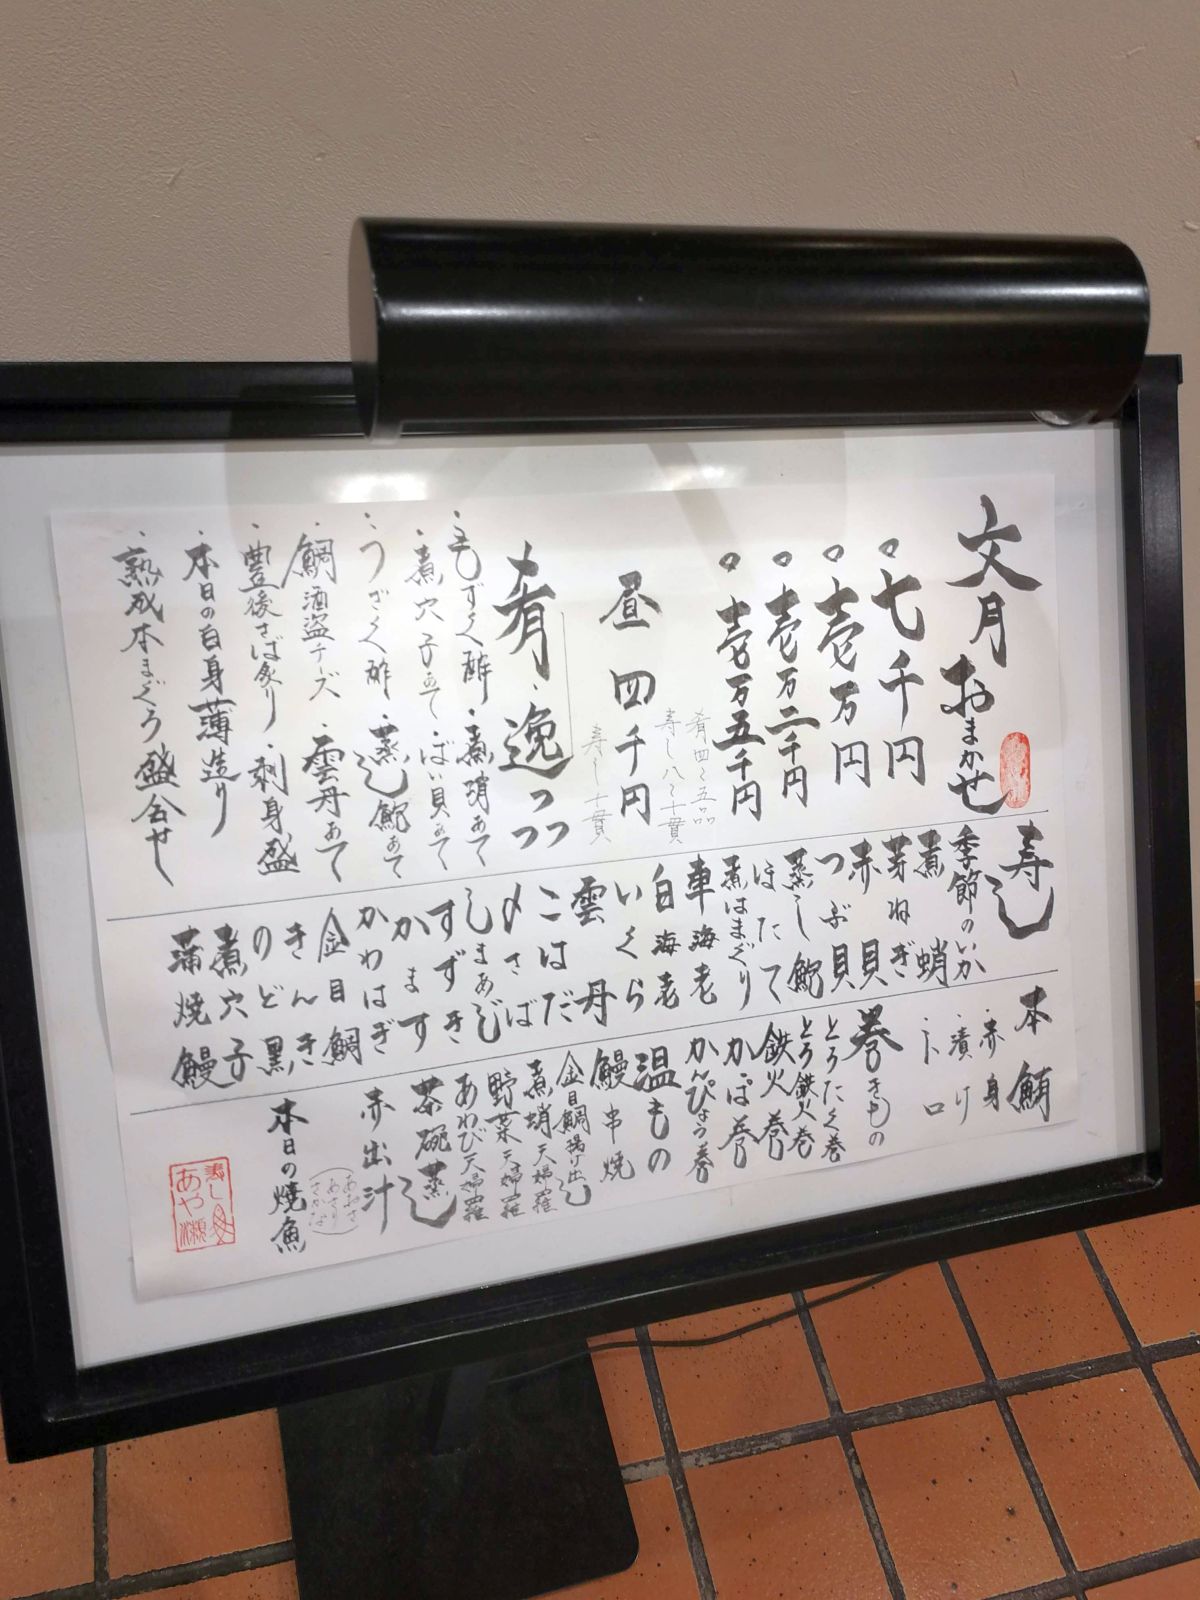 文月おまかせ
。七千円
。壱万円
。壱万二千円
。壱万五千円
肴四〜五品
寿し八〜十貫
昼四千円
寿し十貫
肴、逸品
・もずく酢・煮蛸あて
・煮穴子あて・ばい貝あて
・うざく酢・蒸し鮑あて
・鯛酒盗チーズ・雲丹あて
・豊後さば炙り・刺身盛
・本日の白身薄造り
・熟成本まぐろ盛合せ
寿し
季節のいか
煮蛸
芽ねぎ
赤貝
つぶ貝
蒸し鮑
ほたて
煮はまぐり
車海老
白海老
いくら
雲丹
こはだ
〆さば
しまあじ
すずき
かます
かわはぎ
金目鯛
きんき
のど黒
煮穴子
蒲焼鰻
本鮪
・赤身
・漬け
・トロ
巻きもの
とろたく巻
とろ鉄火巻
鉄火巻
かっぱ巻
かんぴょう巻
温もの
鰻串焼
金目鯛揚げ出し
煮蛸天婦羅
野菜天婦羅
あわび天婦羅
茶碗蒸し
赤出汁
(あおさ
あさり
さかな)
本日の焼魚
寿し
あや瀬